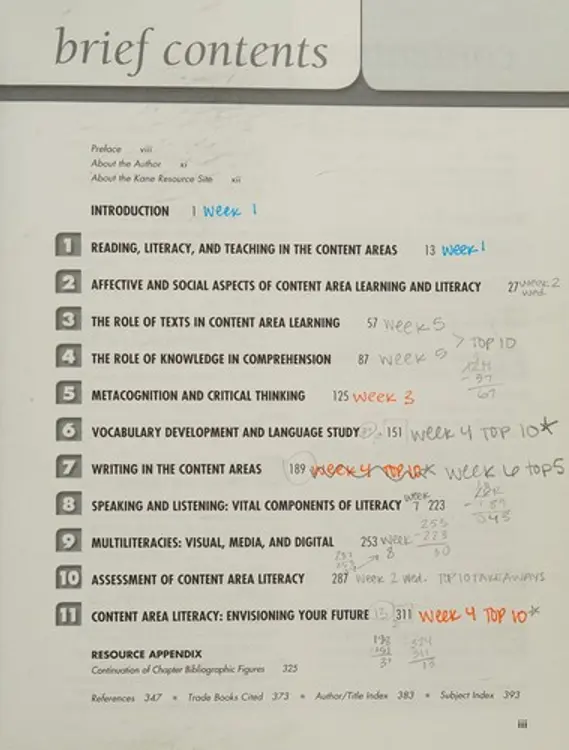 brief contents
Preface viii
About the Author xi
About the Kane Resource Site xii
INTRODUCTION 1 Week 1
1 READING, LITERACY, AND TEACHING IN THE CONTENT AREAS 13 Week 1
2 AFFECTIVE AND SOCIAL ASPECTS OF CONTENT AREA LEARNING AND LITERACY 27 Week 2
Wed.
3 THE ROLE OF TEXTS IN CONTENT AREA LEARNING 57 Week 5
> TOP 10
4 THE ROLE OF KNOWLEDGE IN COMPREHENSION 87 Week 5
- 57
67
5 METACOGNITION AND CRITICAL THINKING 125 Week 3
6 VOCABULARY DEVELOPMENT AND LANGUAGE STUDY 151 Week 4 TOP 10*
7 WRITING IN THE CONTENT AREAS 189 Week 4 TOP 10* Week 6 TOP 5
8 SPEAKING AND LISTENING: VITAL COMPONENTS OF LITERACY Week 7 223
253
- 223
30
9 MULTILITERACIES: VISUAL, MEDIA, AND DIGITAL 253 Week
8
10 ASSESSMENT OF CONTENT AREA LITERACY 287 Week 2 Wed. TOP 10 TAKEAWAYS
11 CONTENT AREA LITERACY: ENVISIONING YOUR FUTURE 13 311 Week 4 TOP 10*
324
311
13
RESOURCE APPENDIX
Continuation of Chapter Bibliographic Figures 325
References 347 • Trade Books Cited 373 • Author/Title Index 383 • Subject Index 393
iii